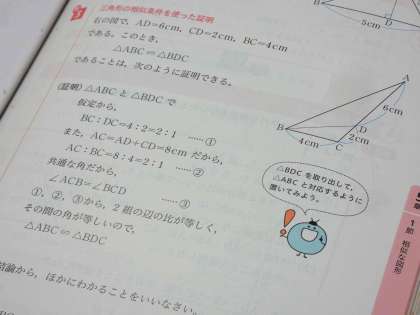 三角形の相似条件を使った証明
右の図で，AD=6cm，CD=2cm，BC=4cm
である。このとき，
△ABC∽△BDC
であることは，次のように証明できる。
(証明) △ABC と △BDC で
仮定から，
BC：DC=4：2=2：1 ……①
また，AC=AD+CD=8cm だから，
AC：BC=8：4=2：1 ……②
共通な角だから，
∠ACB=∠BCD ……③
①，②，③から，2組の辺の比が等しく，
その間の角が等しいので，
△ABC∽△BDC
結論から，ほかにわかることをいいなさい。
B
5cm
D
A
6cm
B
D
2cm
4cm
C
△BDC を取り出して，
△ABC と対応するように
置いてみよう。
章
節 相似な図形